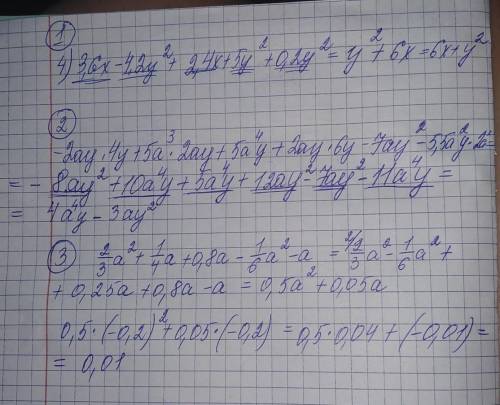 1
4) 3,6x - 4,2y² + 2,4x + 5y² + 0,2y² = y² + 6x = 6x + y²
2
-2ay · 4y + 5a³ · 2ay + 5a⁴y + 2ay · 6y - 7ay² - 5,5a²y · 2a² =
= - 8ay² + 10a⁴y + 5a⁴y + 12ay² - 7ay² - 11a⁴y =
= 4a⁴y - 3ay²
3 2/3 a² + 1/4 a + 0,8a - 1/6 a² - a = 2/3 a² - 1/6 a² +
+ 0,25a + 0,8a - a = 0,5a² + 0,05a
0,5 · (-0,2)² + 0,05 · (-0,2) = 0,5 · 0,04 + (-0,01) =
= 0,01